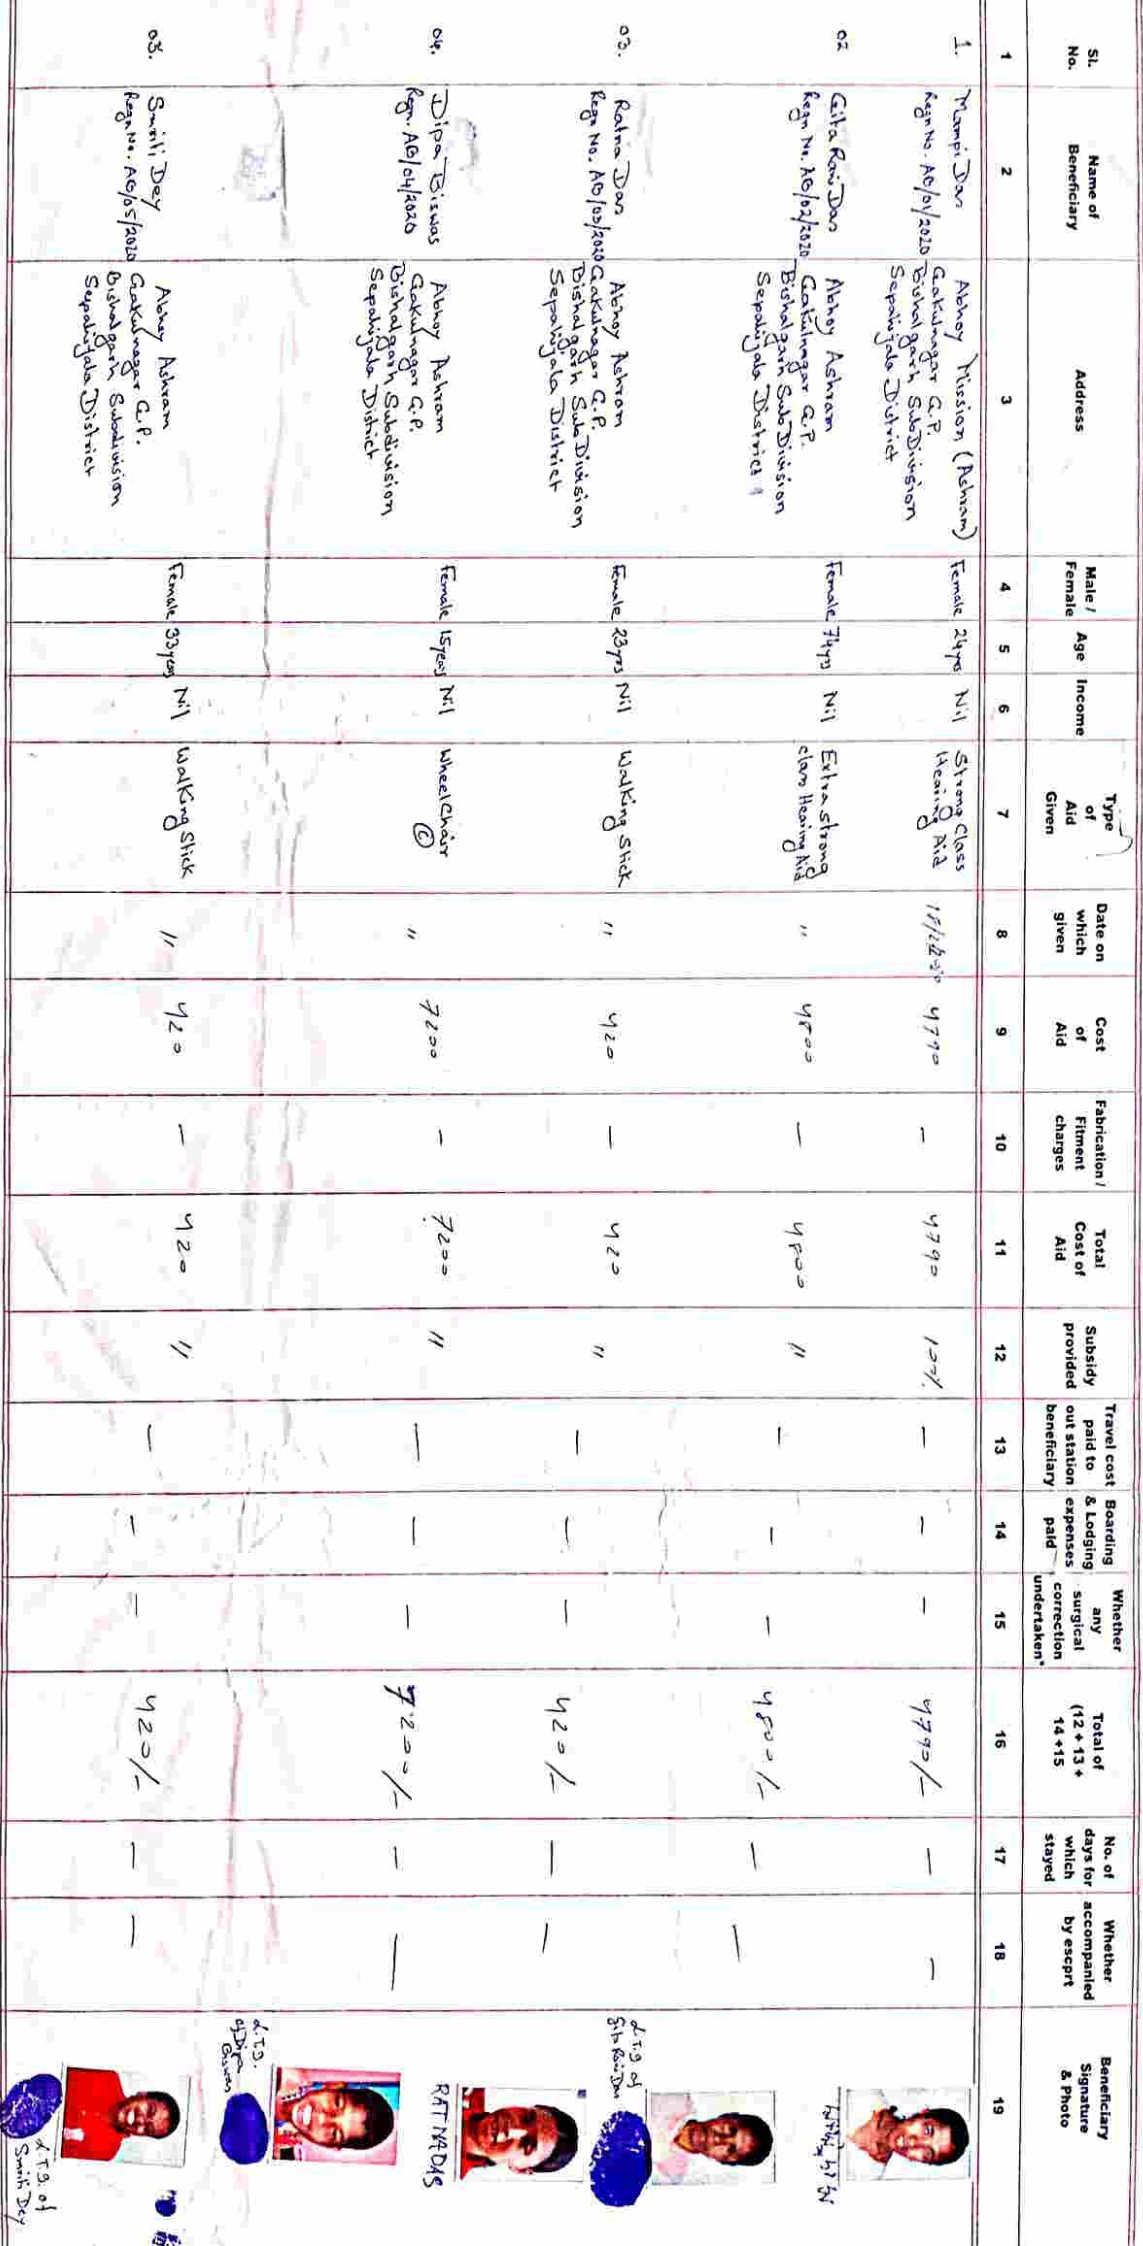 Sl. No.
Name of Beneficiary
Address
Male / Female
Age
Income
Type of Aid Given
Date on which given
Cost of Aid
Fabrication / Fitment charges
Total Cost of Aid
Subsidy provided
Travel cost paid to out station beneficiary
Boarding & Lodging expenses paid
Whether any surgical correction undertaken*
Total of (12 + 13 + 14+15
No. of days for which stayed
Whether accompanied by escprt
Beneficiary Signature & Photo
1 2 3 4 5 6 7 8 9 10 11 12 13 14 15 16 17 18 19
1.
Mampi Das
Regn No. AB/01/2020
Abhoy Mission (Ashram)
Gakulnagar G.P.
Bishalgarh Sub Division
Sepahijala District
Female 24yrs Nil
Strong Class
Hearing Aid
4790 – 4790 100% – – – 4790/- – –
02
Gita Rani Das
Regn No. AB/02/2020
Abhoy Ashram
Gakulnagar G.P.
Bishalgarh Sub Division
Sepahijala District
Female 74yrs Nil
Extra strong
class Hearing Aid
" 4800 – 4800 " – – – 4800/- – –
L.T.I of
Gita Rani Das
03.
Ratna Das
Regn No. AB/03/2020
Abhoy Ashram
Gakulnagar G.P.
Bishalgarh Sub Division
Sepahijala District
Female 23yrs Nil
Walking Stick
" 420 – 420 " – – – 420/- – –
RATNADAS
04.
Dipa Biswas
Regn. AB/04/2020
Abhoy Ashram
Gakulnagar G.P.
Bishalgarh Subdivision
Sepahijala District
Female 15years Nil
Wheel Chair
©
" 7200 – 7200 " – – – 7200/- – –
L.T.I.
of Dipa
Biswas
05.
Smriti Dey
Regn No. AB/05/2020
Abhoy Ashram
Gakulnagar G.P.
Bishalgarh Subdivision
Sepahijala District
Female 33years Nil
Walking Stick
" 420 – 420 " – – – 420/- – –
L.T.I. of
Smriti Dey